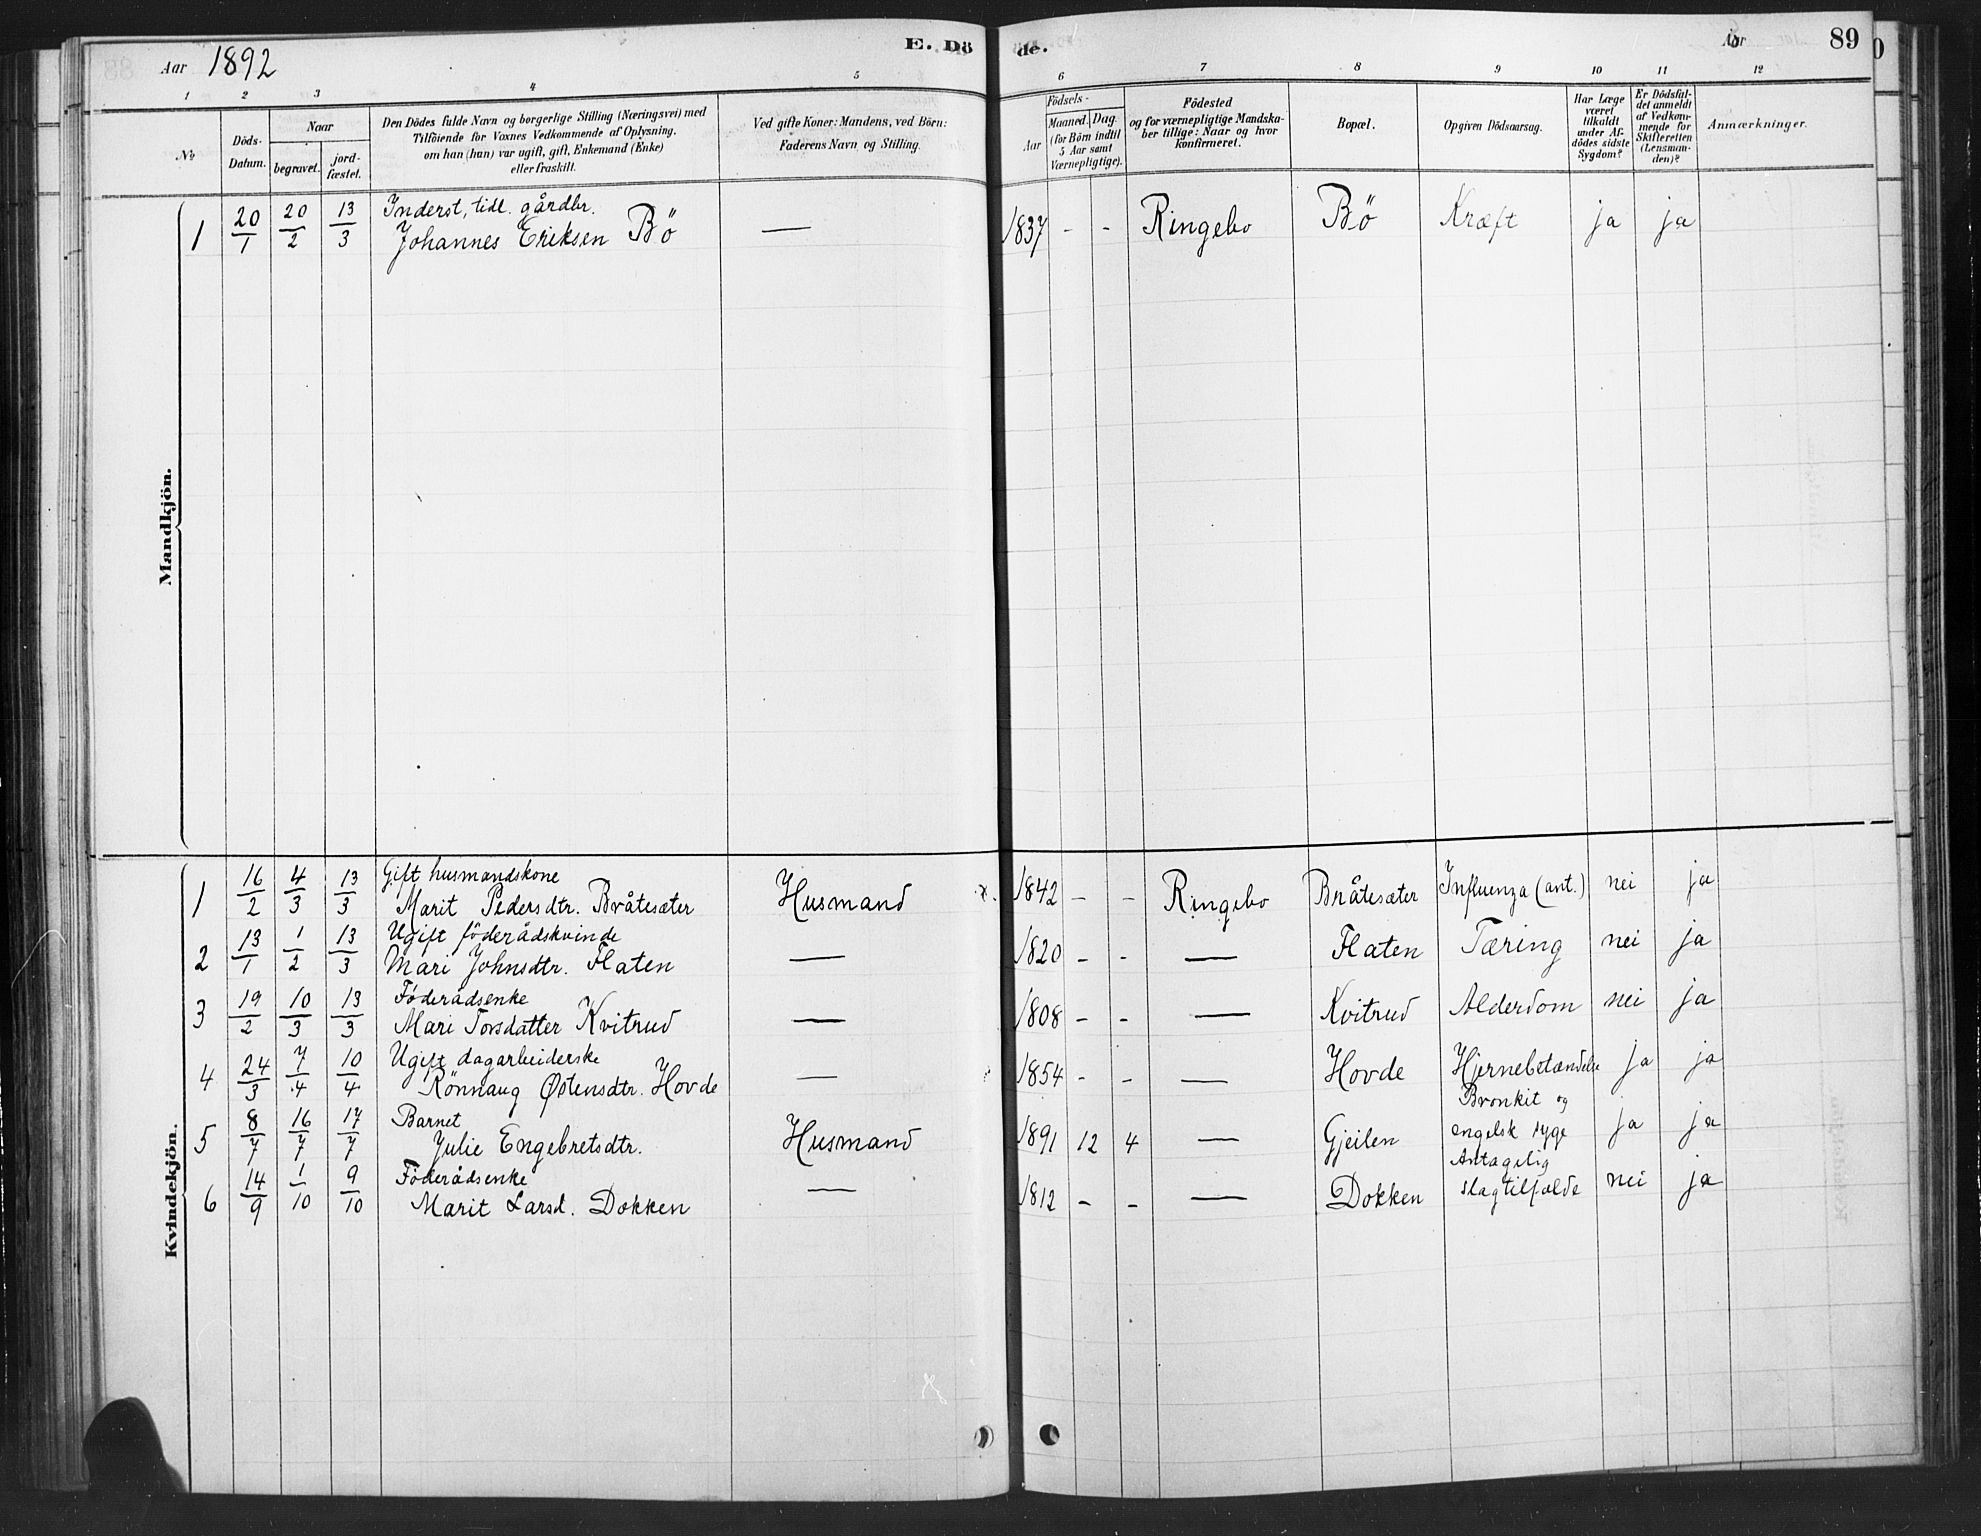 Aar 1892 E. Dö de. Aar 89
1 2 3 4 5 6 7 8 9 10 11 12
№ Döds-Datum. Naar begravet. jord-fæstet. Den Dödes fulde Navn og borgerlige Stilling (Næringsvei) med Tilföiende for Voxnes Vedkommende af Oplysning. om han (hun) var ugift, gift, Enkemand (Enke) eller fraskilt. Ved gifte Koner: Mandens, ved Börn: Faderens Navn og Stilling. Födsels- Aar Maaned. Dag. (for Börn indtil 5 Aar samt Værnepligtige). Födested og for værnepligtige Mandskaber tillige: Naar og hvor konfirmeret. Bopæl. Opgiven Dödsaarsag. Har Læge været tilkaldt under Afdödes sidste Sygdom? Er Dödsfaldet anmeldt af Vedkommende for Skifteretten (Lensmanden)? Anmærkninger.
Mandkjön.
Inderst, tidl. gårdbr.
1 20/1 20/2 13/3 Johannes Eriksen Bö — 1837 - - Ringebo Bö Kræft ja ja
Kvindekjön.
Gift husmandskone
1 16/2 4/3 13/3 Marit Pedersdtr. Bråtesæter Husmand x. 1842 - - Ringebo Bråtesæter Influenza (ant.) nei ja
Ugift föderådskvinde
2 13/1 1/2 13/3 Mari Johnsdtr. Flaten — 1820 - - — Flaten Tæring nei ja
Föderådsenke
3 19/2 10/3 13/3 Mari Torsdatter Kvitrud — 1808 - - — Kvitrud Alderdom nei ja
Ugift dagarbeiderske
4 24/3 7/4 10/4 Rönnaug Østensdtr. Hovde — 1854 - - — Hovde Hjernebetændelse ja ja
Barnet Bronkit og
5 8/7 16/7 17/7 Julie Engebretsdtr. Husmand 1891 12 4 — Gjeilen engelsk syge ja ja
Föderådsenke Antagelig
6 14/9 1/10 9/10 Marit Larsd. Dokken — 1812 - - — Dokken slagtilfælde nei ja